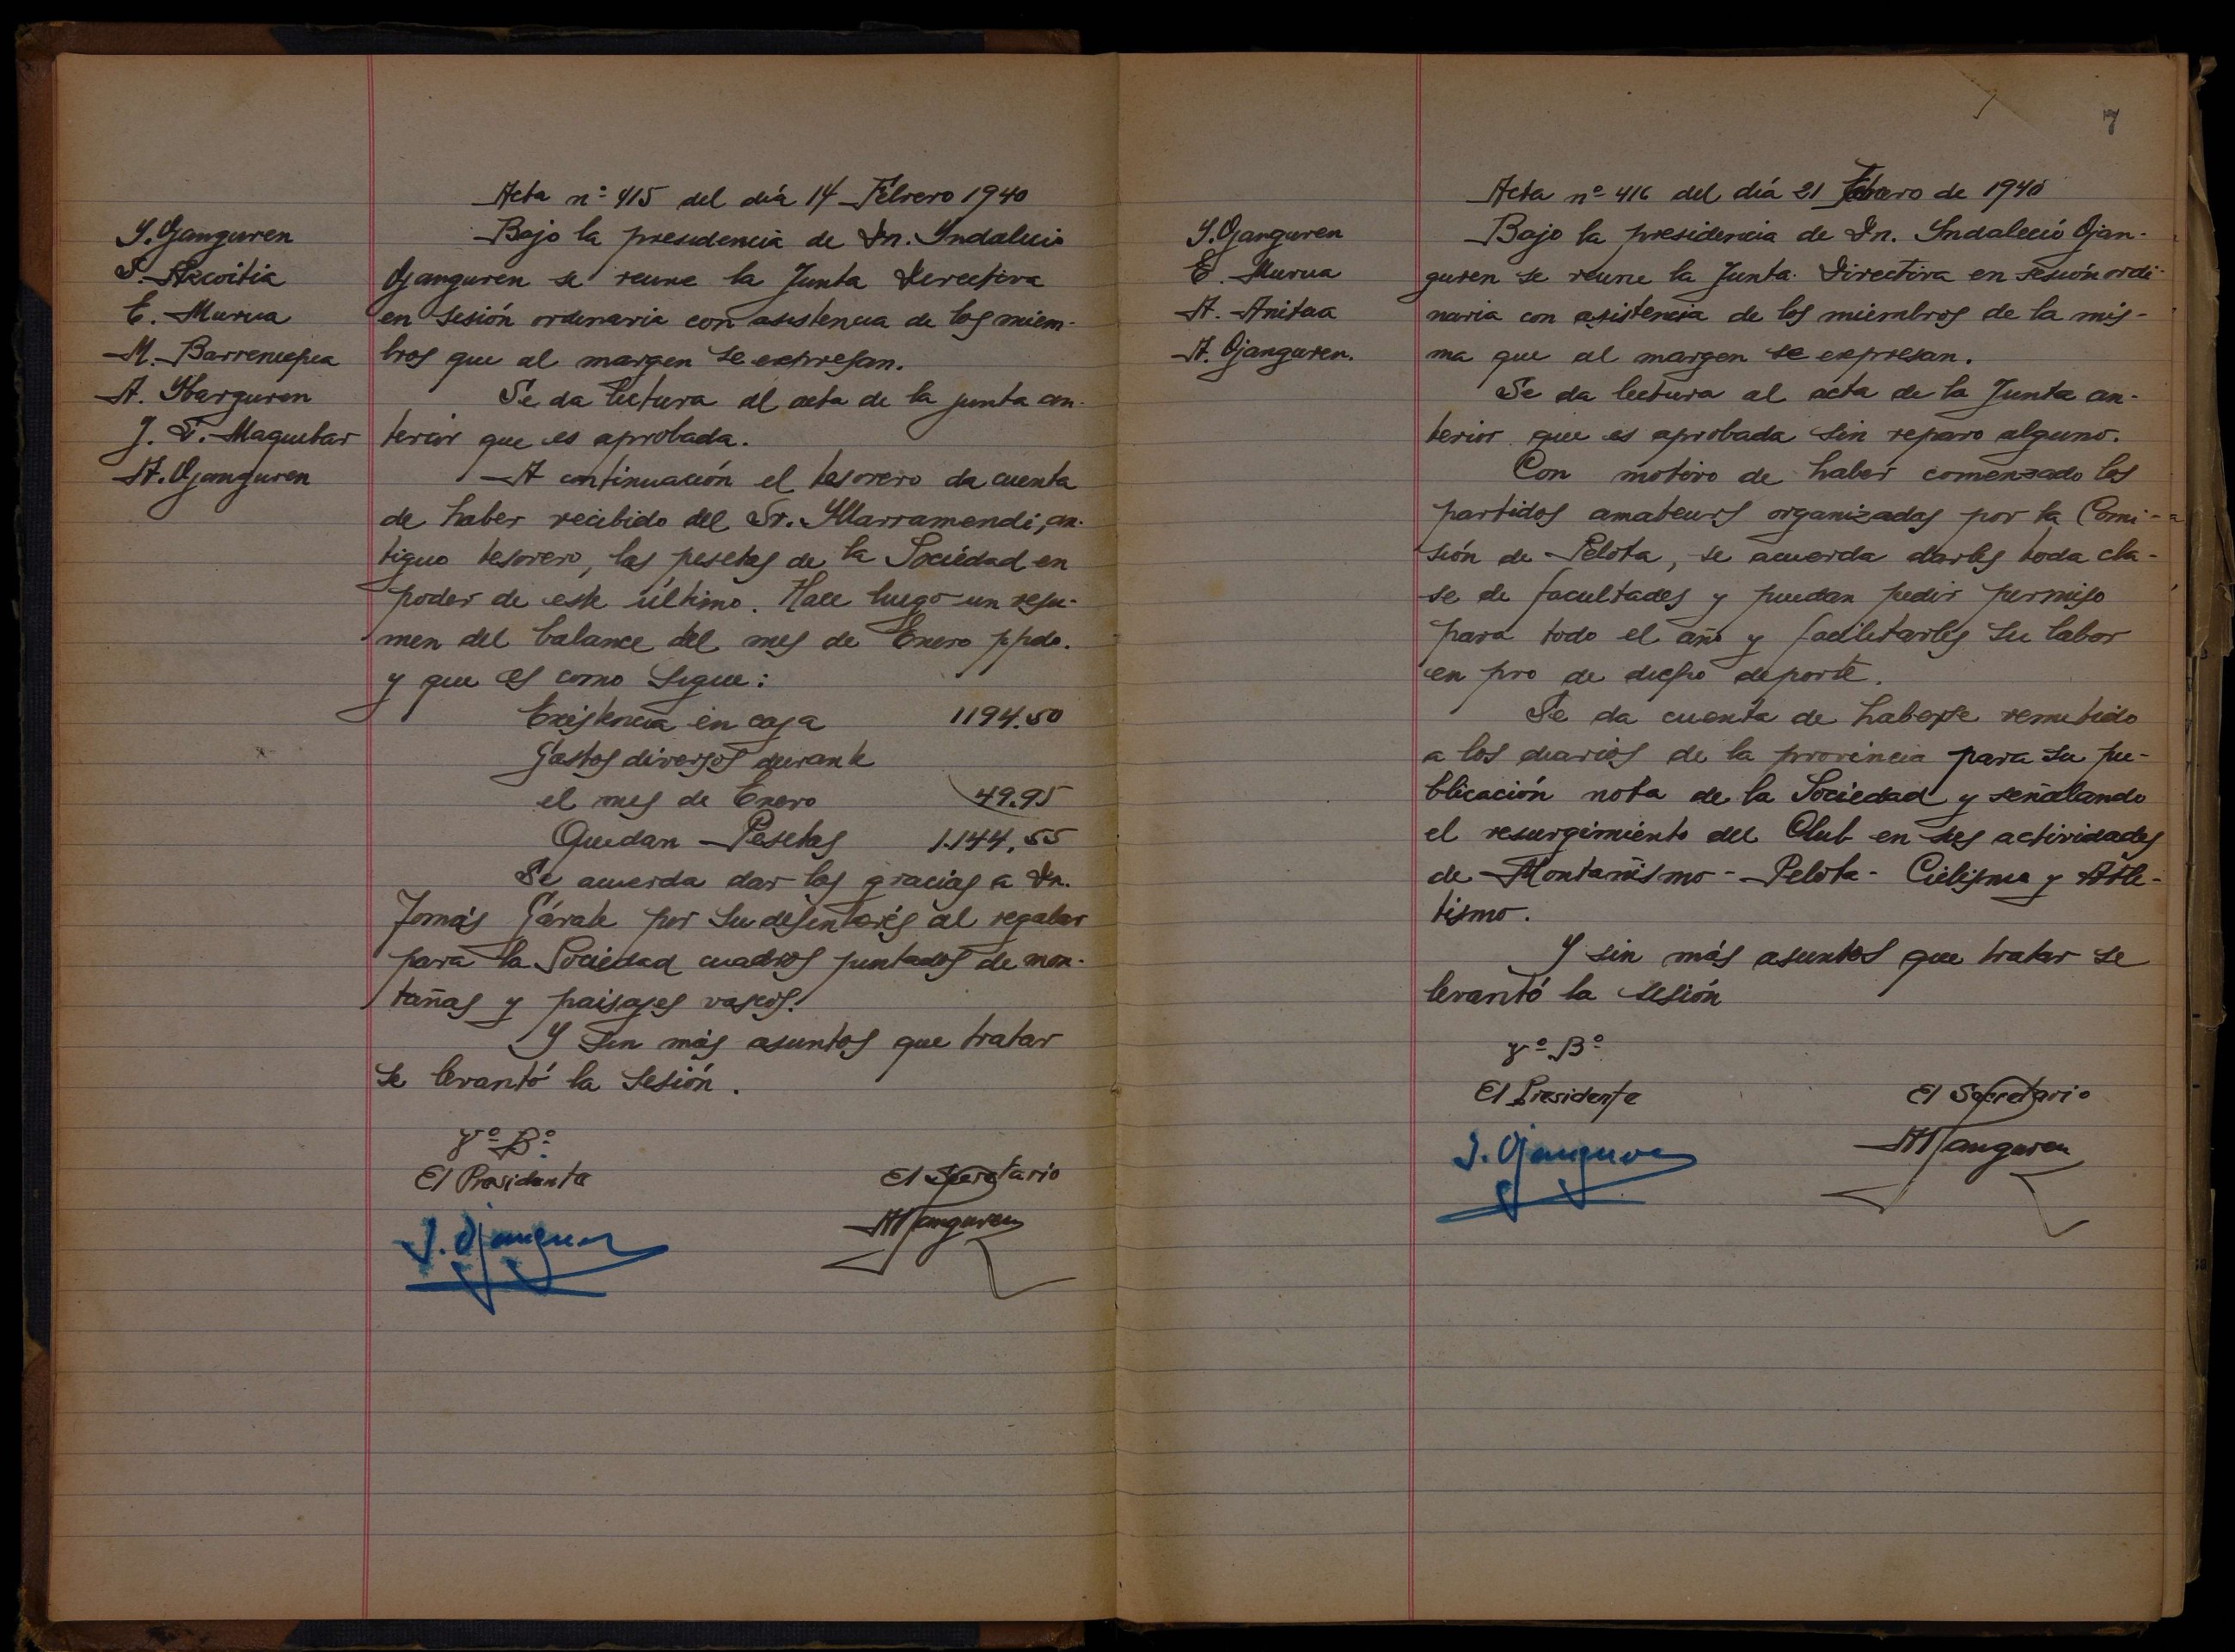 Acta nº 415 del día 14 Febrero 1940
Y. Ojanguren
S. Azcoitia
E. Murua
M. Barrenechea
A. Ybarguren
J. T. Maguibar
A. Ojanguren
Bajo la presidencia de Dn. Yndalecio
Ojanguren se reune la Junta Directiva
en sesión ordinaria con asistencia de los miem-
bros que al margen se expresan.
Se da lectura al acta de la junta an-
terior que es aprobada.
A continuación el tesorero da cuenta
de haber recibido del Sr. Yllarramendi, an-
tiguo tesorero, las pesetas de la Sociedad en
poder de este último. Hace luego un resu-
men del balance del mes de Enero ppdo.
y que es como sigue:
Existencia en caja 1194.50
Gastos diversos durante
el mes de Enero 49.95
Quedan Pesetas 1.144,55
Se acuerda dar las gracias a Dn.
Tomás Gárate por su desinterés al regalar
para la Sociedad cuadros pintados de mon-
tañas y paisajes vascos.
Y sin más asuntos que tratar
se levantó la sesión.
Vº Bº
El Presidente El Secretario
Y. Ojanguren A Ojanguren
7
Acta nº 416 del día 21 Febrero de 1940
Y. Ojanguren
E. Murua
A. Anitua
A. Ojanguren.
Bajo la presidencia de Dn. Yndalecio Ojan-
guren se reune la Junta Directiva en sesión ordi-
naria con asistencia de los miembros de la mis-
ma que al margen se expresan.
Se da lectura al acta de la Junta an-
terior que es aprobada sin reparo alguno.
Con motivo de haber comenzado los
partidos amateurs organizados por la Comi-
sión de Pelota, se acuerda darles toda cla-
se de facultades y puedan pedir permiso
para todo el año y facilitarles su labor
en pro de dicho deporte.
Se da cuenta de haberse remitido
a los diarios de la provincia para su pu-
blicación nota de la Sociedad y señalando
el resurgimiento del Club en sus actividades
de Montañismo - Pelota - Ciclismo y Atle-
tismo.
Y sin más asuntos que tratar se
levantó la sesión
Vº Bº
El Presidente El Secretario
Y. Ojanguren A Ojanguren